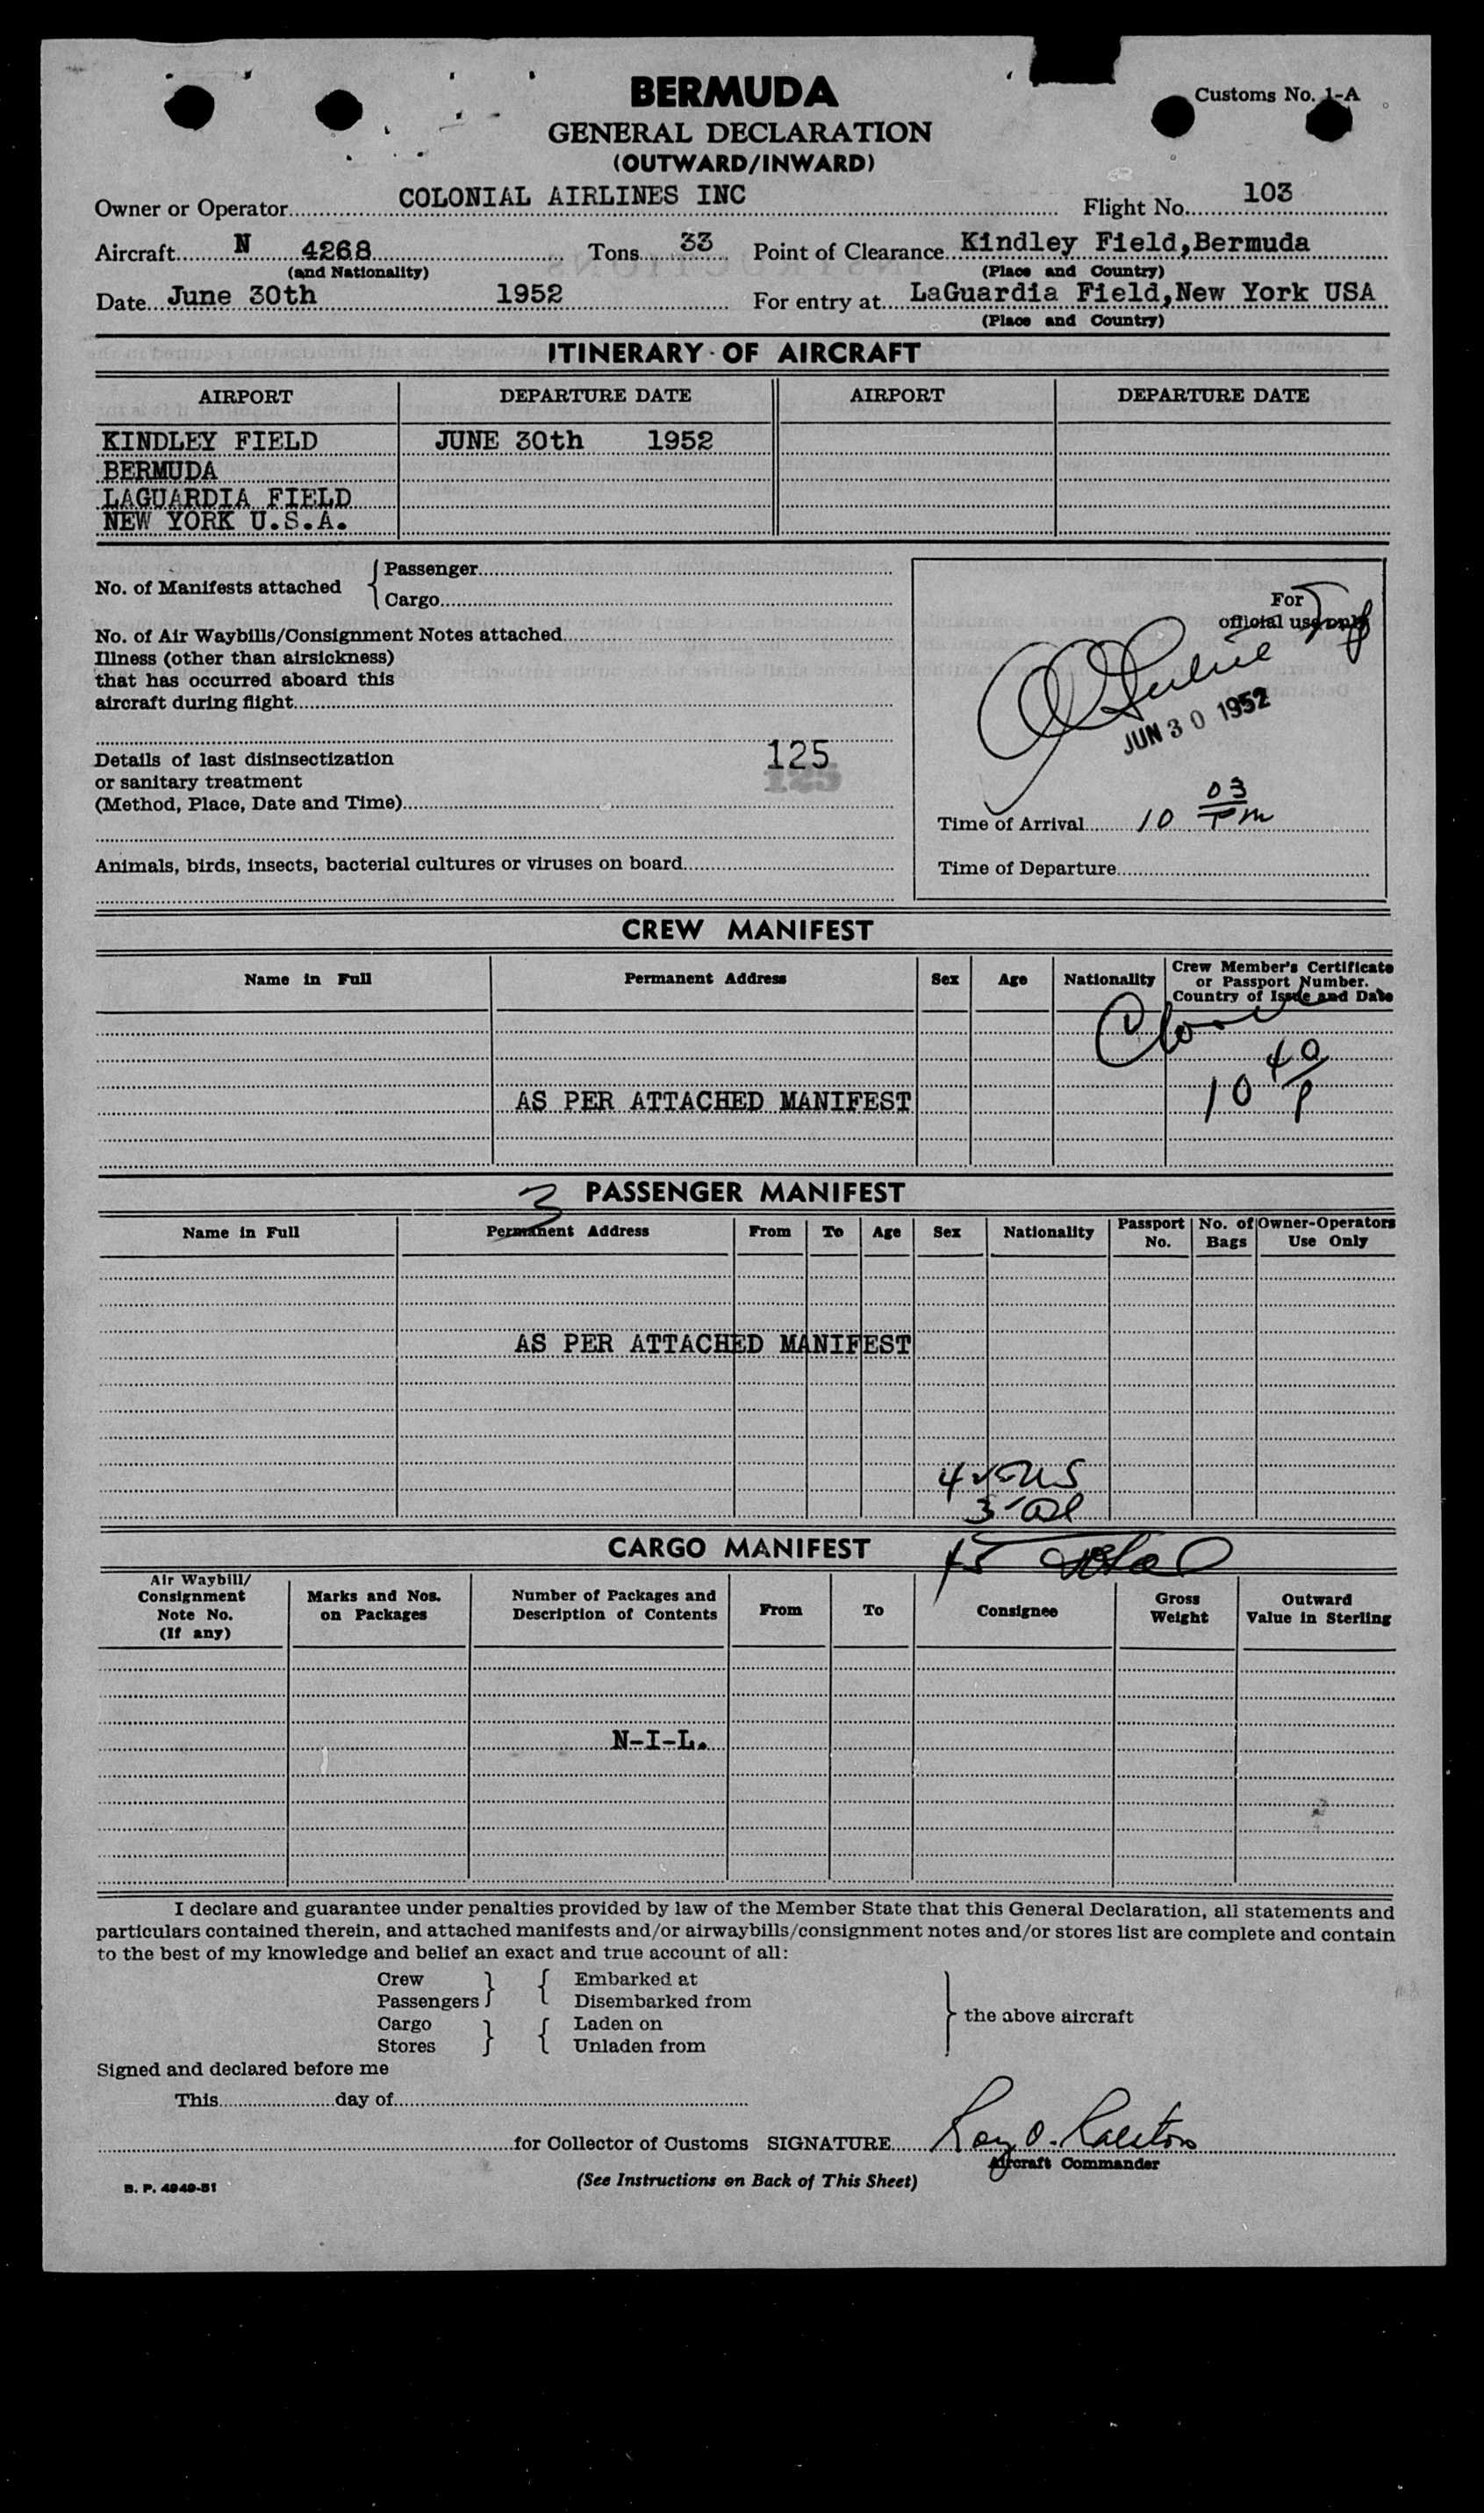 BERMUDA
Customs No. 1-A
GENERAL DECLARATION
(OUTWARD/INWARD)
Owner or Operator COLONIAL AIRLINES INC Flight No. 103
Aircraft N 4268 Tons 33 Point of Clearance Kindley Field, Bermuda
(and Nationality) (Place and Country)
Date June 30th 1952 For entry at LaGuardia Field, New York USA
(Place and Country)
ITINERARY OF AIRCRAFT
AIRPORT DEPARTURE DATE AIRPORT DEPARTURE DATE
KINDLEY FIELD JUNE 30th 1952
BERMUDA
LAGUARDIA FIELD
NEW YORK U.S.A.
No. of Manifests attached
Passenger
Cargo
No. of Air Waybills/Consignment Notes attached
Illness (other than airsickness)
that has occurred aboard this
aircraft during flight
Details of last disinsectization
or sanitary treatment
(Method, Place, Date and Time)
125
125
Animals, birds, insects, bacterial cultures or viruses on board
For
official use only
JUN 30 1952
Time of Arrival 10 03 PM
Time of Departure
CREW MANIFEST
Name in Full Permanent Address Sex Age Nationality Crew Member's Certificate
or Passport Number.
Country of Issue and Date
10 40 P
AS PER ATTACHED MANIFEST
3 PASSENGER MANIFEST
Name in Full Permanent Address From To Age Sex Nationality Passport No. No. of Bags Owner-Operators Use Only
AS PER ATTACHED MANIFEST
US
3 al
CARGO MANIFEST
45 Total
Air Waybill/
Consignment
Note No.
(If any)
Marks and Nos.
on Packages
Number of Packages and
Description of Contents
From To Consignee
Gross
Weight
Outward
Value in Sterling
N-I-L.
I declare and guarantee under penalties provided by law of the Member State that this General Declaration, all statements and
particulars contained therein, and attached manifests and/or airwaybills/consignment notes and/or stores list are complete and contain
to the best of my knowledge and belief an exact and true account of all:
Crew Embarked at
Passengers Disembarked from
Cargo Laden on
Stores Unladen from
the above aircraft
Signed and declared before me
This day of
for Collector of Customs SIGNATURE Roy O. Ralston
Aircraft Commander
B. P. 4949-51
(See Instructions on Back of This Sheet)